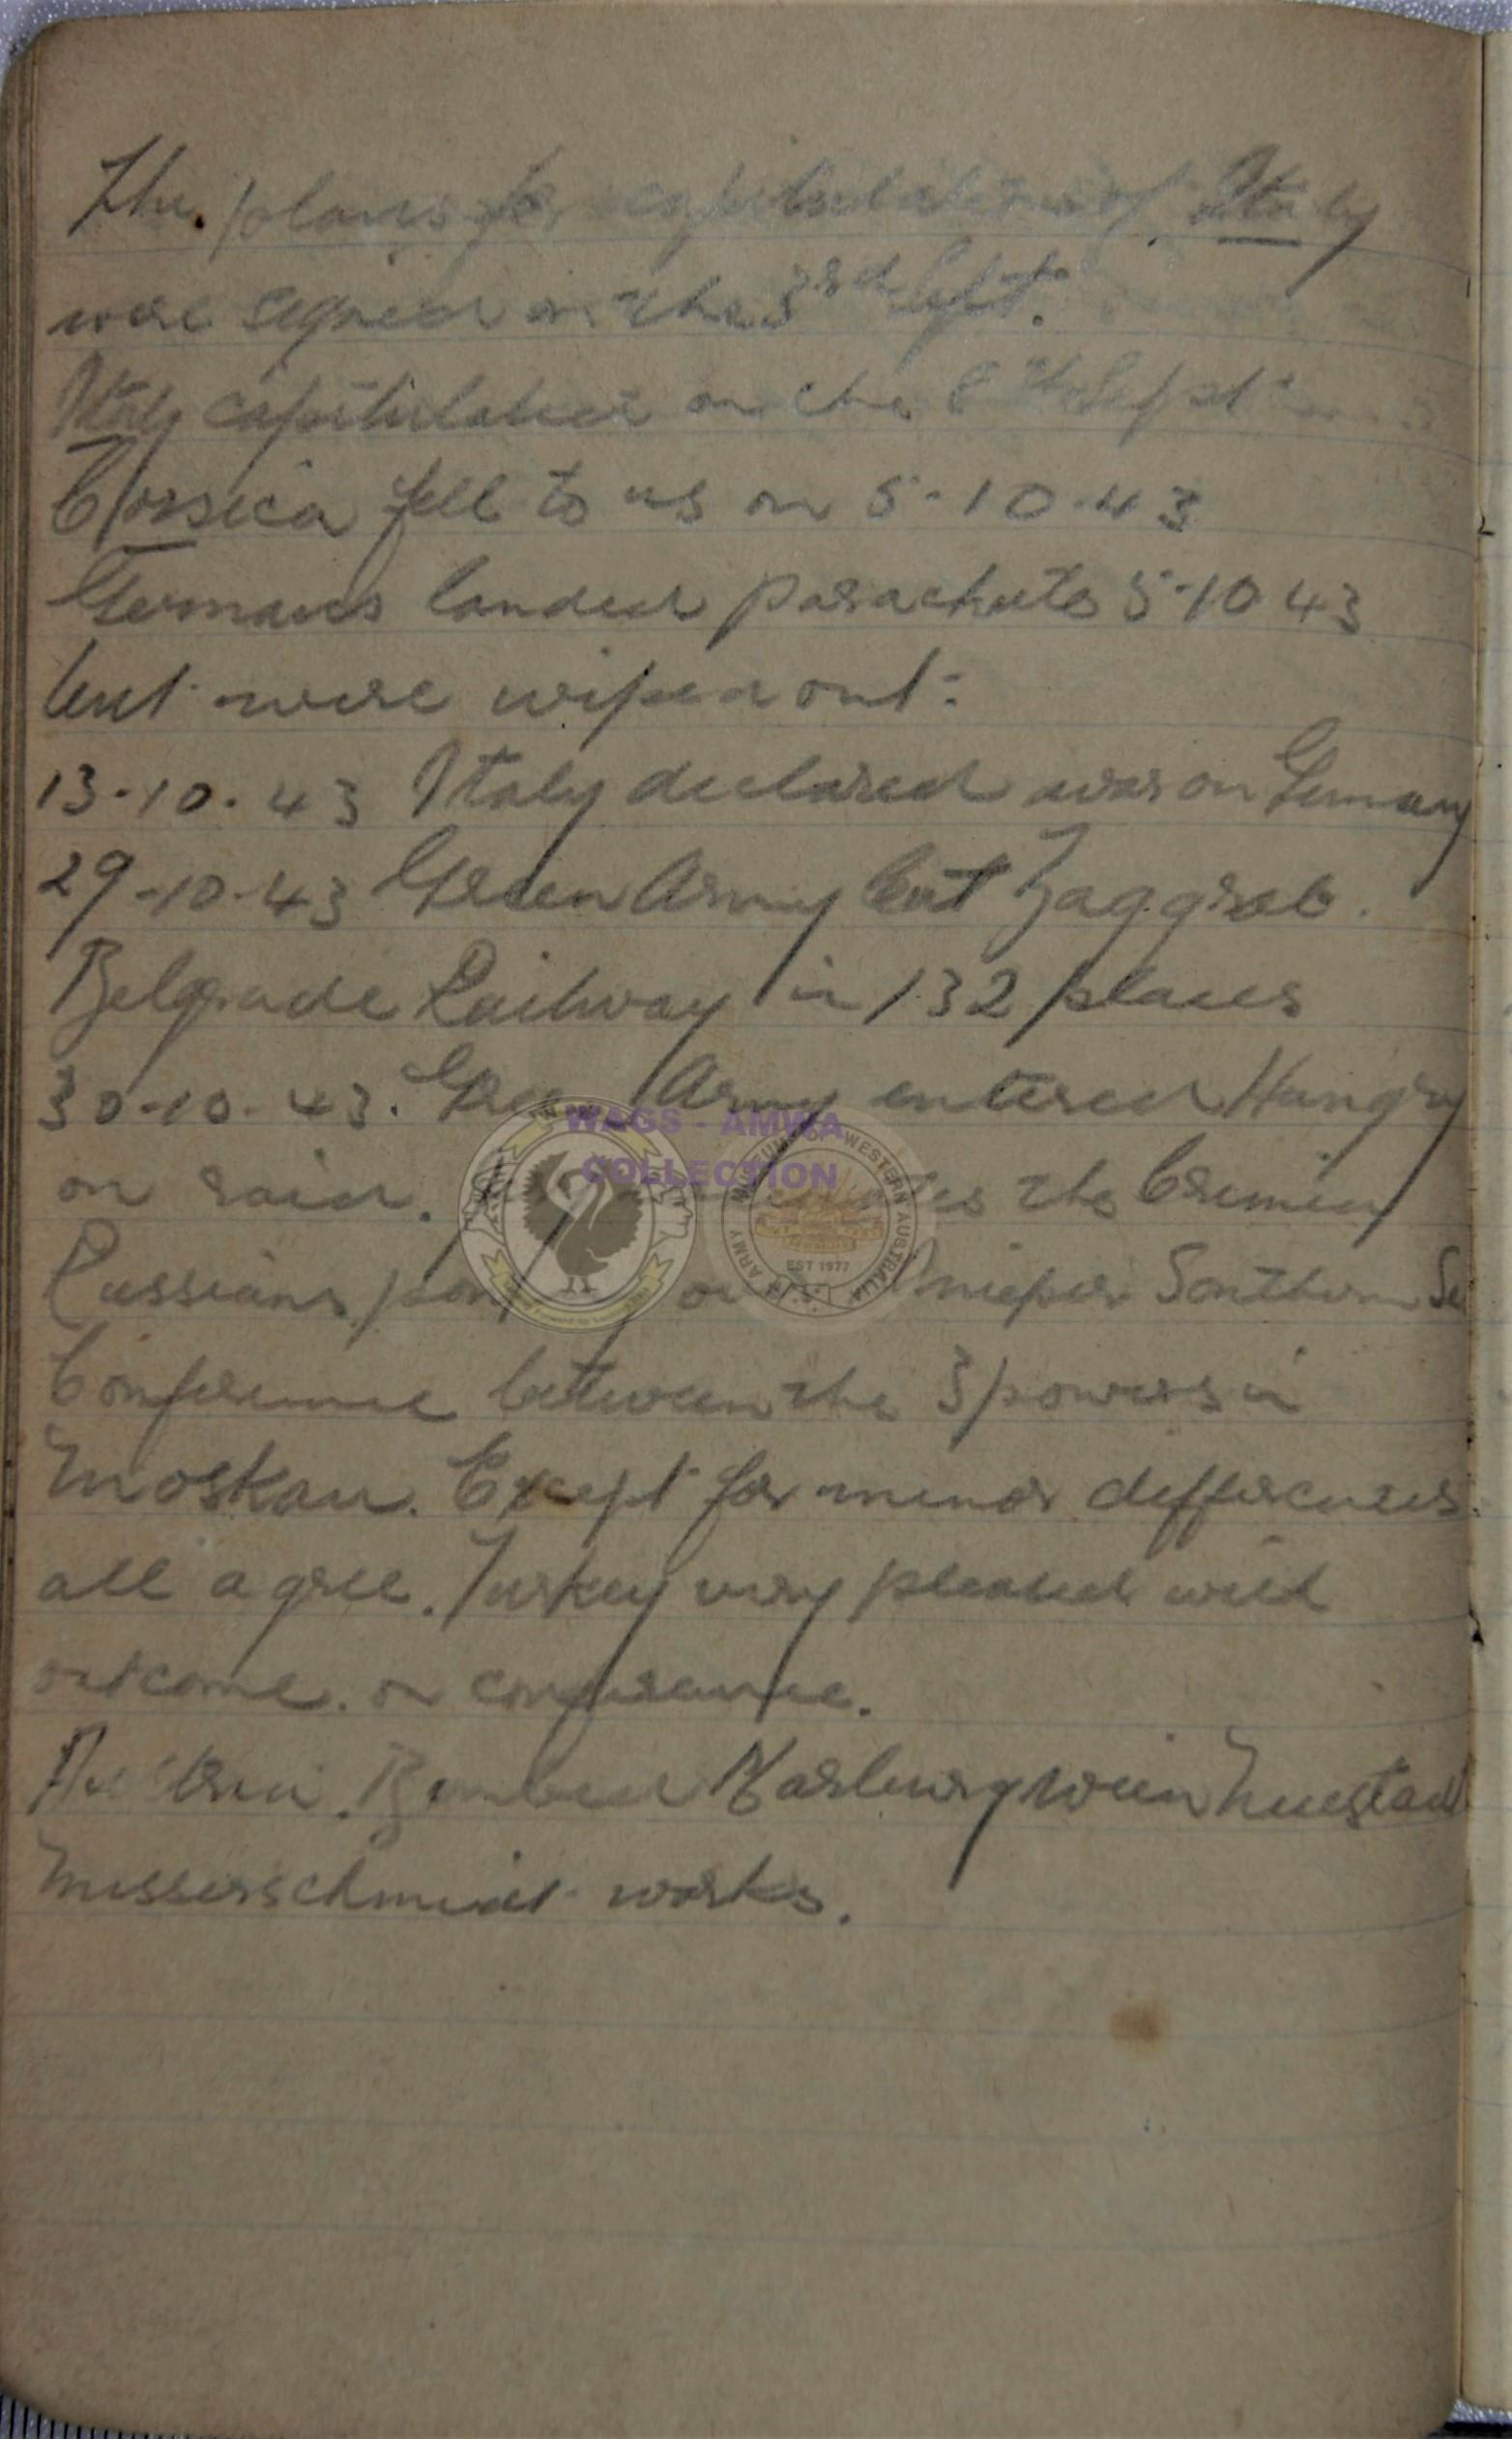 The plans for capitulation of Italy
were signed on the 3rd Sept.
Italy capitulated on the 8th Sept
Corsica fell to us on 5-10-43
Germans landed parachuts 5-10 43
but were wiped out:
13-10-43 Italy declared war on Germany
29-10-43 Green Army cut Zaggreb.
Belgrade Railway in 132 places
30-10-43. Green Army entered Hungry
WAGS - AMWA
COLLECTION
on raid. the Crimea
EST 1977
Russians Dnieper Southern
Conference between the 3 powers in
Moskau. Except for minor differences
all agree. Turkey very pleased with
outcome. on conference.
Austria. Bombed Marburg Wien Neustadt
Messerschmidt works.